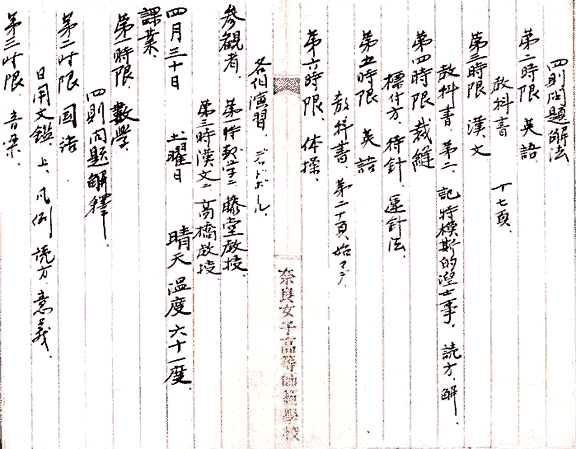 四則問題解法
第二時限 英語
教科書 十七頁、
第三時限 漢文
教科書、第二、記特模斯的涅士事、読方、解
第四時限、裁縫
標付方、待針、運針法、
第五時限 英語
教科書、第二十頁、始マデ、
第六時限、体操、
各個演習、
参観者、第一時数学ニ藤堂教授、
第三時漢文ニ高橋教授
四月三十日 土曜日 晴天 温度六十一度、
課業、
第一時限、数学、
四則問題解釋、
第二時限 国語
日用文鑑 上、凡例 読方、意義、
第三時限 音楽、
奈良女子高等師範學校